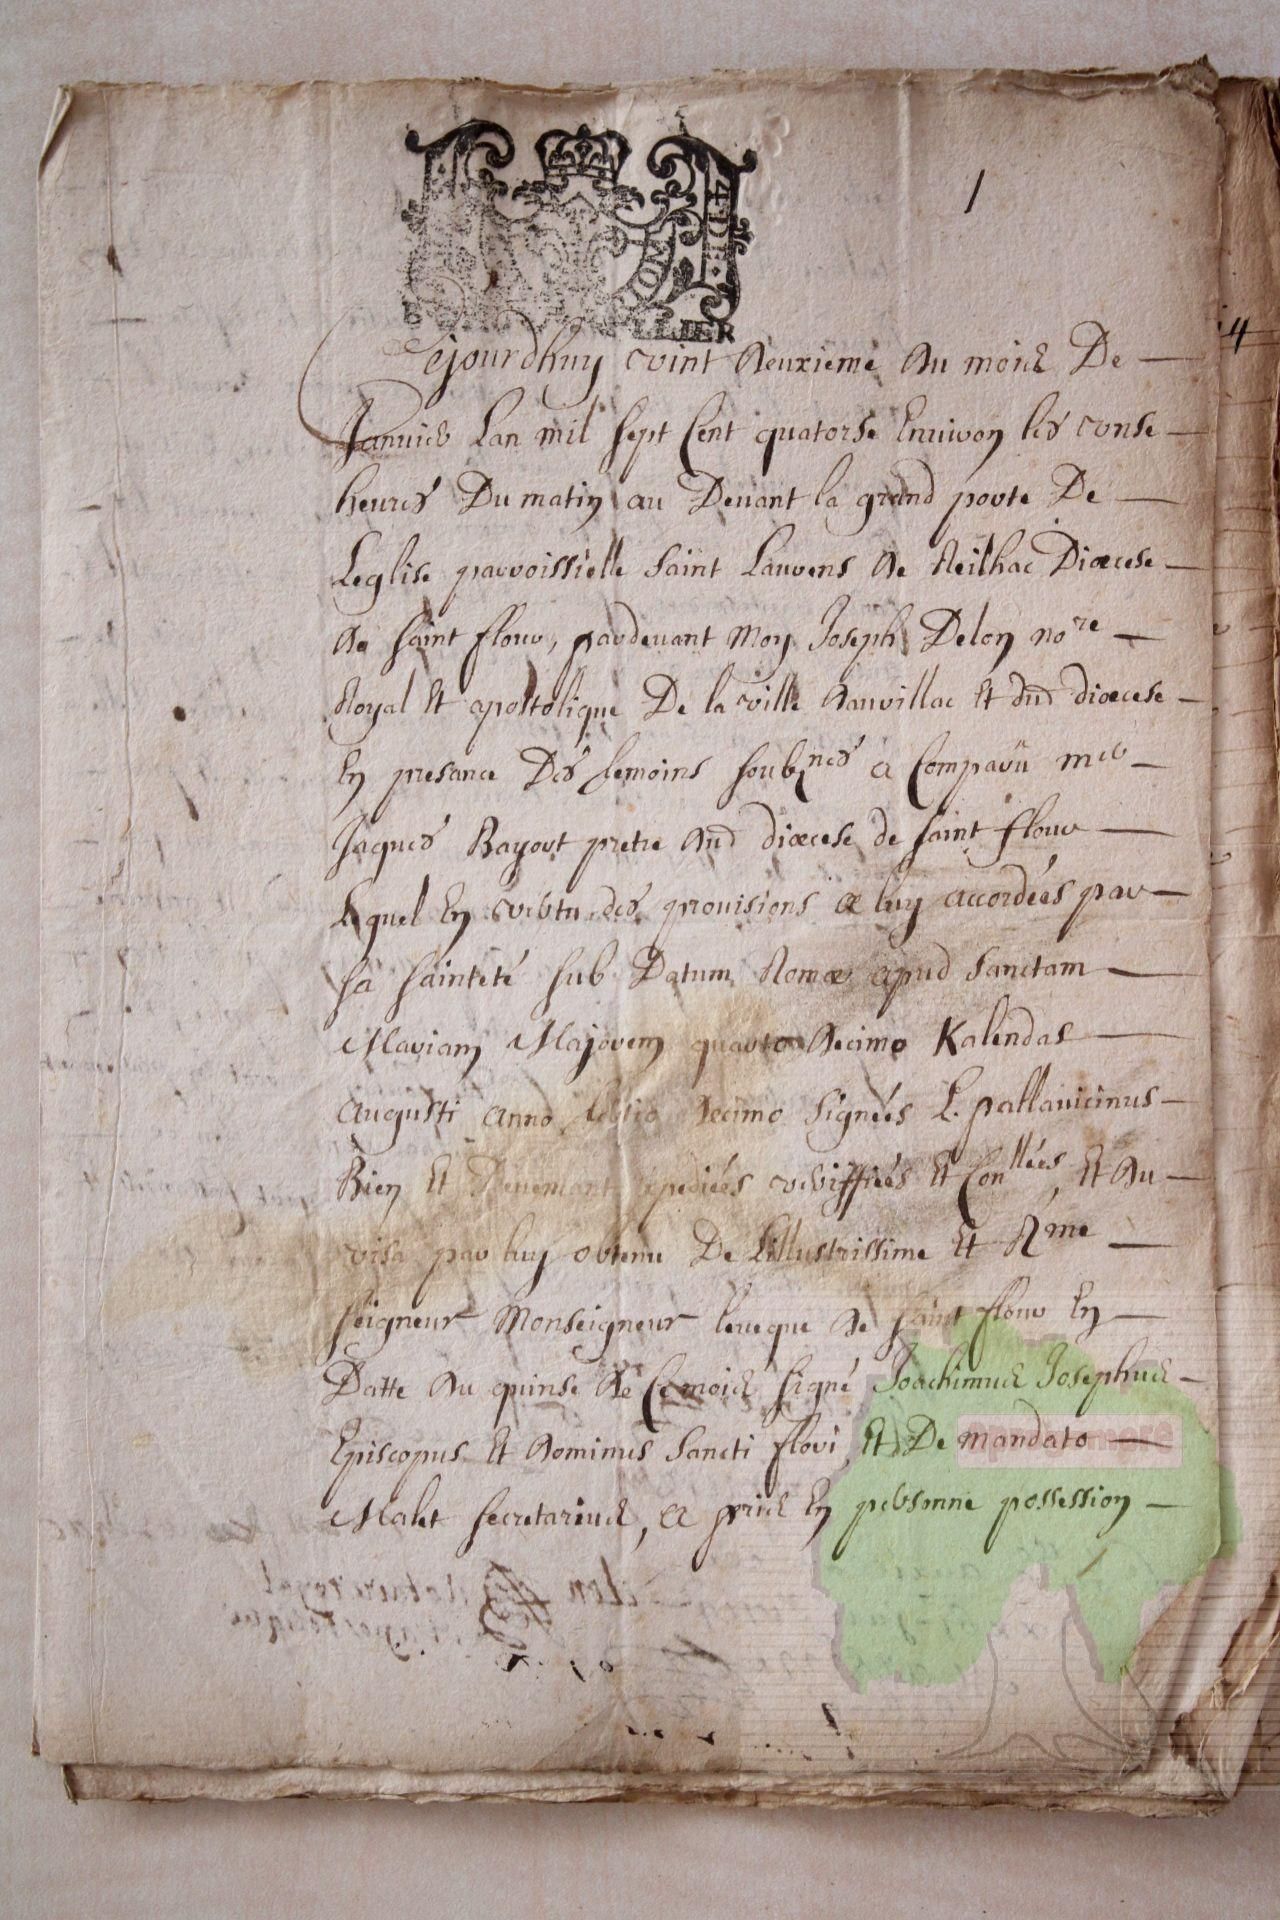 1
Cejourdhuy vint deuxieme du mois De
Janvier Lan mil sept Cent quatorse Environ les onse
heures Du matin au Devant la grand porte De
Leglise parroissielle Saint Laurens de Reilhac Diœcese
de Saint flour, pardevant Moy Joseph Delon no.re
Royal Et apostolique De la ville daurillac et dud diœcese
En presance Des temoins soub.nés a Comparü m.e
Jaques Bayort pretre dud diœcese de Saint flour
Lequel En vertu des provisions a luy accordées par
Sa Sainteté sub Datum Romæ apud Sanctam
Mariam Majorem quarto decimo Kalendas
Augusti anno tertio decimo Signées L. pallavicinus
Bien et Deuement expediées veriffiées Et Con.llées, Et du
visa par luy obtenu De Lillustrissime Et R.me
Seigneur Monseigneur leveque de Saint flour En
Datte du quinse de Ce mois signé Joachimus Josephus
Episcopus Et dominus Sancti flori, Et De mandato
Malet Secretarius, a pris En personne possession